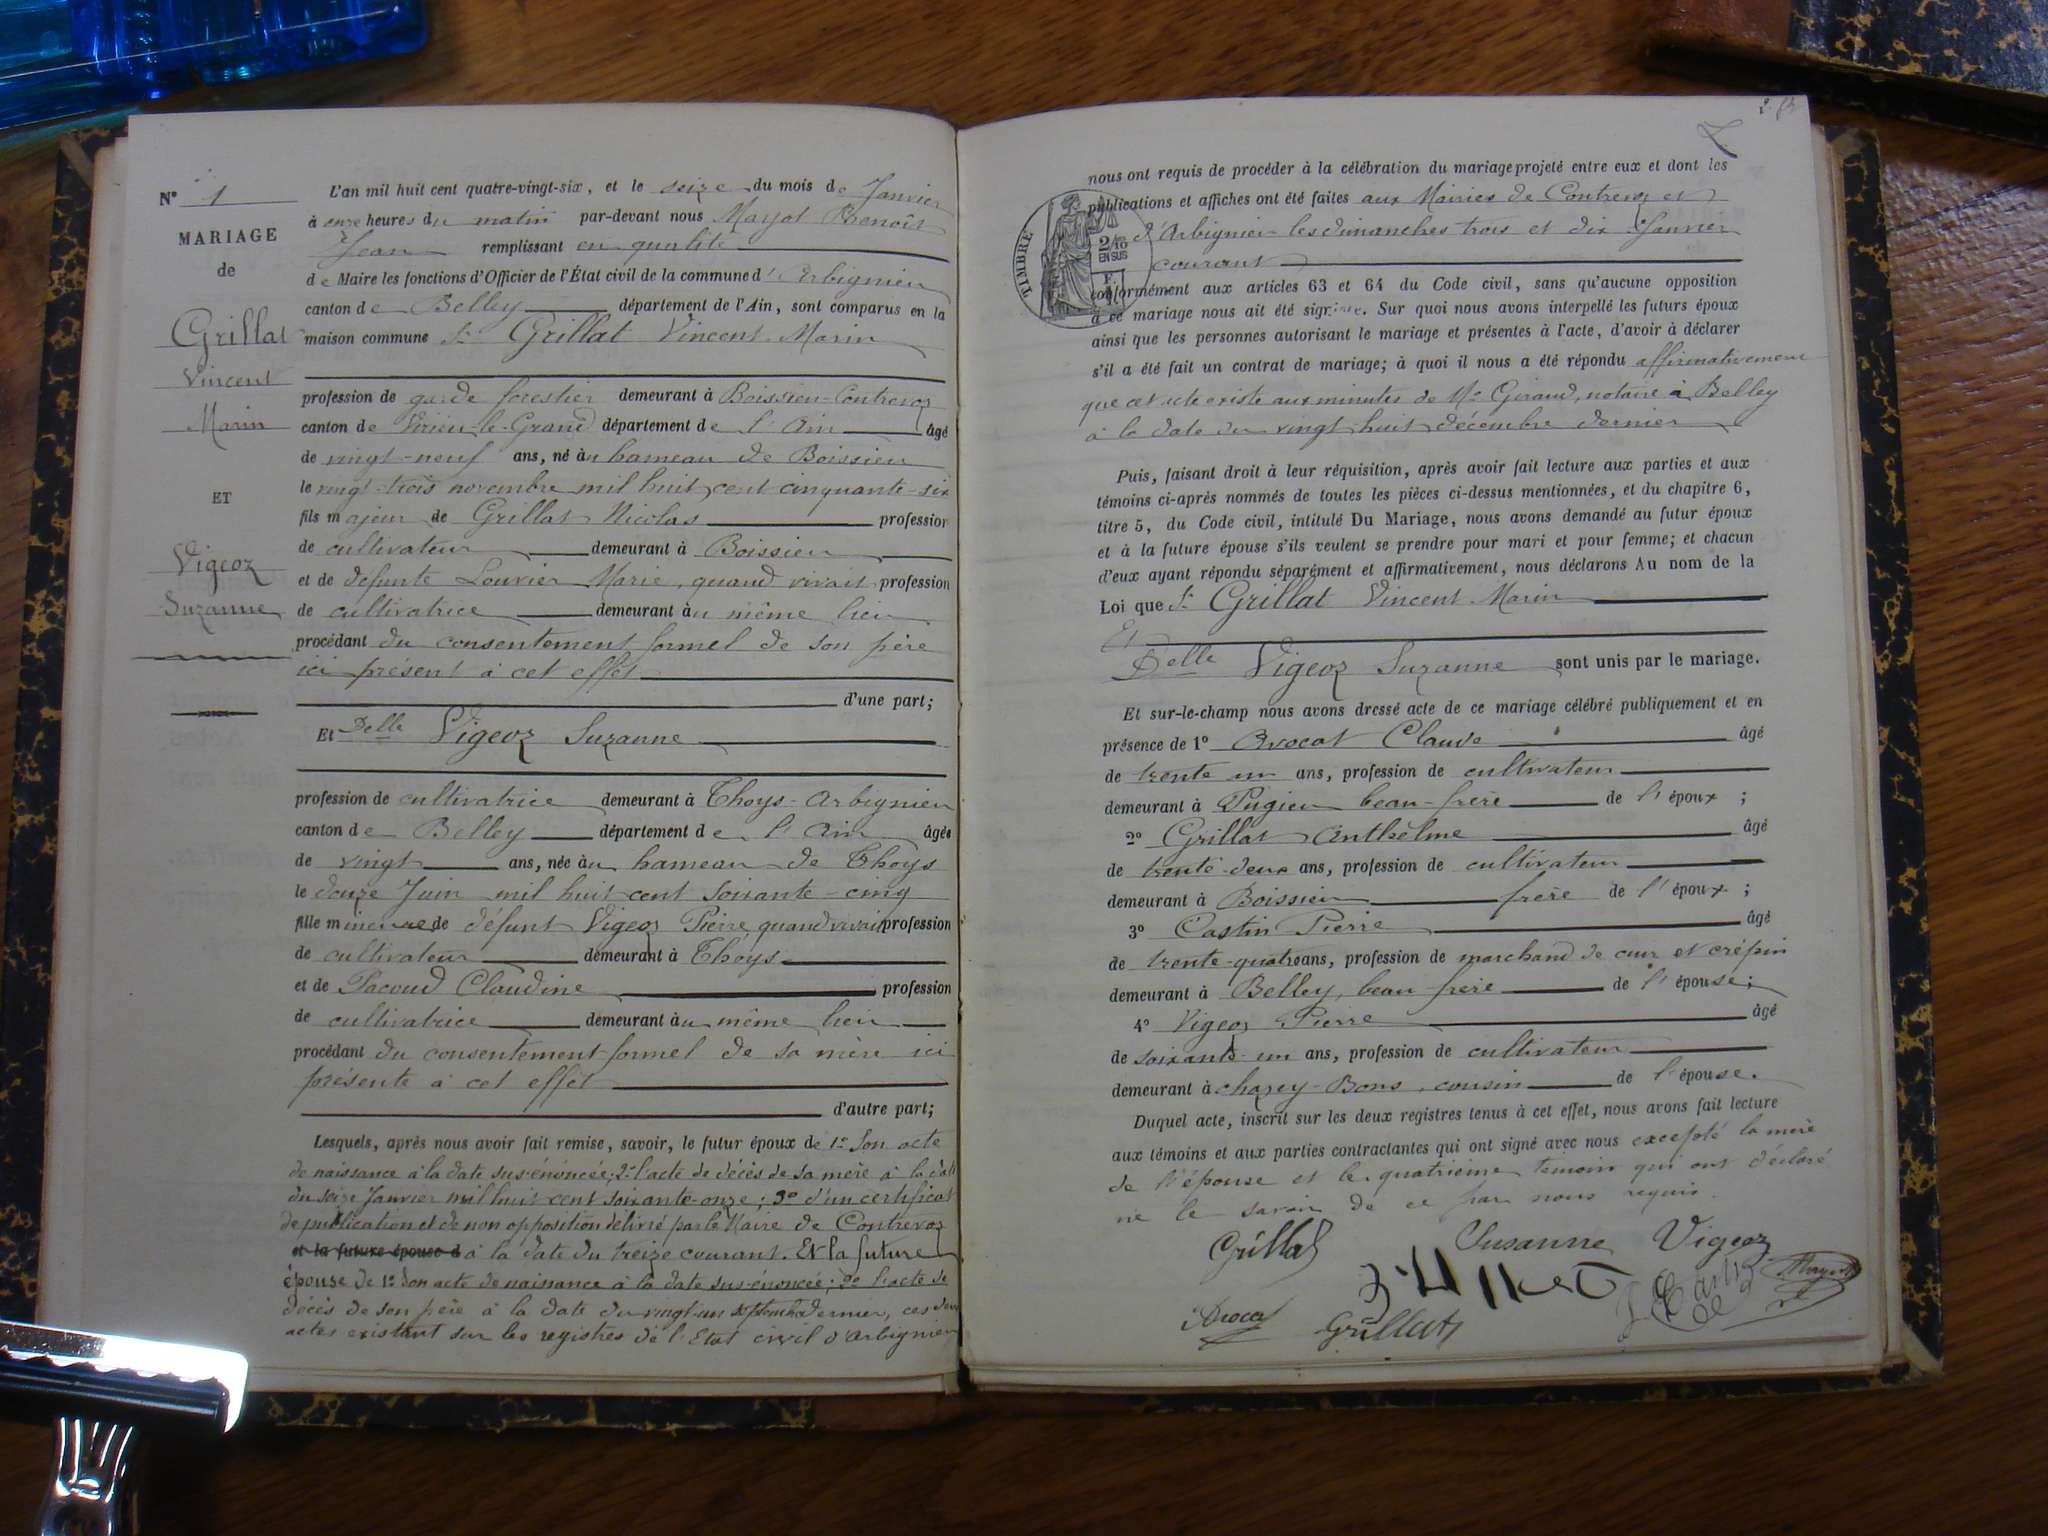 N° 1
MARIAGE
de
Grillat
Vincent
Marin
ET
Vigeoz
Suzanne
L'an mil huit cent quatre-vingt-six, et le seize du mois de Janvier
à onze heures du matin par-devant nous Mayot Benoît
Jean remplissant en qualité
de Maire les fonctions d'Officier de l'État civil de la commune d'Arbignieu
canton de Belley département de l'Ain, sont comparus en la
maison commune Sr Grillat Vincent Marin
profession de garde forestier demeurant à Boissieu-Contrevoz
canton de Virieu-le-Grand département de l'Ain âgé
de vingt-neuf ans, né au hameau de Boissieu
le vingt-trois novembre mil huit cent cinquante-six
fils majeur de Grillat Nicolas profession
de cultivateur demeurant à Boissieu
et de défunte Louvier Marie, quand vivait profession
de cultivatrice demeurant au même lieu
procédant du consentement formel de son père
ici présent à cet effet
d'une part;
Et Delle Vigeoz Suzanne
profession de cultivatrice demeurant à Thoys-Arbignieu
canton de Belley département de l'Ain âgée
de vingt ans, née au hameau de Thoys
le douze Juin mil huit cent soixante-cinq
fille mineure de défunt Vigeoz Pierre, quand vivait profession
de cultivateur demeurant à Thoys
et de Pacoud Claudine profession
de cultivatrice demeurant au même lieu
procédant du consentement formel de sa mère ici
présente à cet effet
d'autre part;
Lesquels, après nous avoir fait remise, savoir, le futur époux de 1° son acte
de naissance à la date sus-énoncée; 2° l'acte de décès de sa mère à la date
du seize Janvier mil huit cent soixante-onze; 3° d'un certificat
de publication et de non opposition délivré par le Maire de Contrevoz
et la future épouse d à la date du treize courant. Et la future
épouse de 1° son acte de naissance à la date sus-énoncée; 2° l'acte de
décès de son père à la date du vingt-un septembre dernier, ces deux
actes existant sur les registres de l'Etat civil d'Arbignieu
nous ont requis de procéder à la célébration du mariage projeté entre eux et dont les
publications et affiches ont été faites aux Mairies de Contrevoz et
d'Arbignieu les dimanches trois et dix Janvier
courant
TIMBRE
2/10
EN SUS
conformément aux articles 63 et 64 du Code civil, sans qu'aucune opposition
à ce mariage nous ait été signifiée. Sur quoi nous avons interpellé les futurs époux
ainsi que les personnes autorisant le mariage et présentes à l'acte, d'avoir à déclarer
s'il a été fait un contrat de mariage; à quoi il nous a été répondu affirmativement
que cet acte existe aux minutes de Me Giraud, notaire à Belley
à la date du vingt-huit décembre dernier
Puis, faisant droit à leur réquisition, après avoir fait lecture aux parties et aux
témoins ci-après nommés de toutes les pièces ci-dessus mentionnées, et du chapitre 6,
titre 5, du Code civil, intitulé Du Mariage, nous avons demandé au futur époux
et à la future épouse s'ils veulent se prendre pour mari et pour femme; et chacun
d'eux ayant répondu séparément et affirmativement, nous déclarons Au nom de la
Loi que Sr Grillat Vincent Marin
Et
Delle Vigeoz Suzanne sont unis par le mariage.
Et sur-le-champ nous avons dressé acte de ce mariage célébré publiquement et en
présence de 1° Avocat Claude âgé
de trente un ans, profession de cultivateur
demeurant à Pugieu beau-frère de l'époux;
2° Grillat Anthelme âgé
de trente-deux ans, profession de cultivateur
demeurant à Boissieu frère de l'époux;
3° Castin Pierre âgé
de trente-quatre ans, profession de marchand de cuir et crépin
demeurant à Belley, beau-frère de l'épouse;
4° Vigeoz Pierre âgé
de soixante-un ans, profession de cultivateur
demeurant à chazey-Bons, cousin de l'épouse.
Duquel acte, inscrit sur les deux registres tenus à cet effet, nous avons fait lecture
aux témoins et aux parties contractantes qui ont signé avec nous excepté la mère
de l'épouse et le quatrième témoin qui ont déclaré
ne le savoir de ce par nous requis.
Grillat
Susanne Vigeoz
Avocat
Grillat